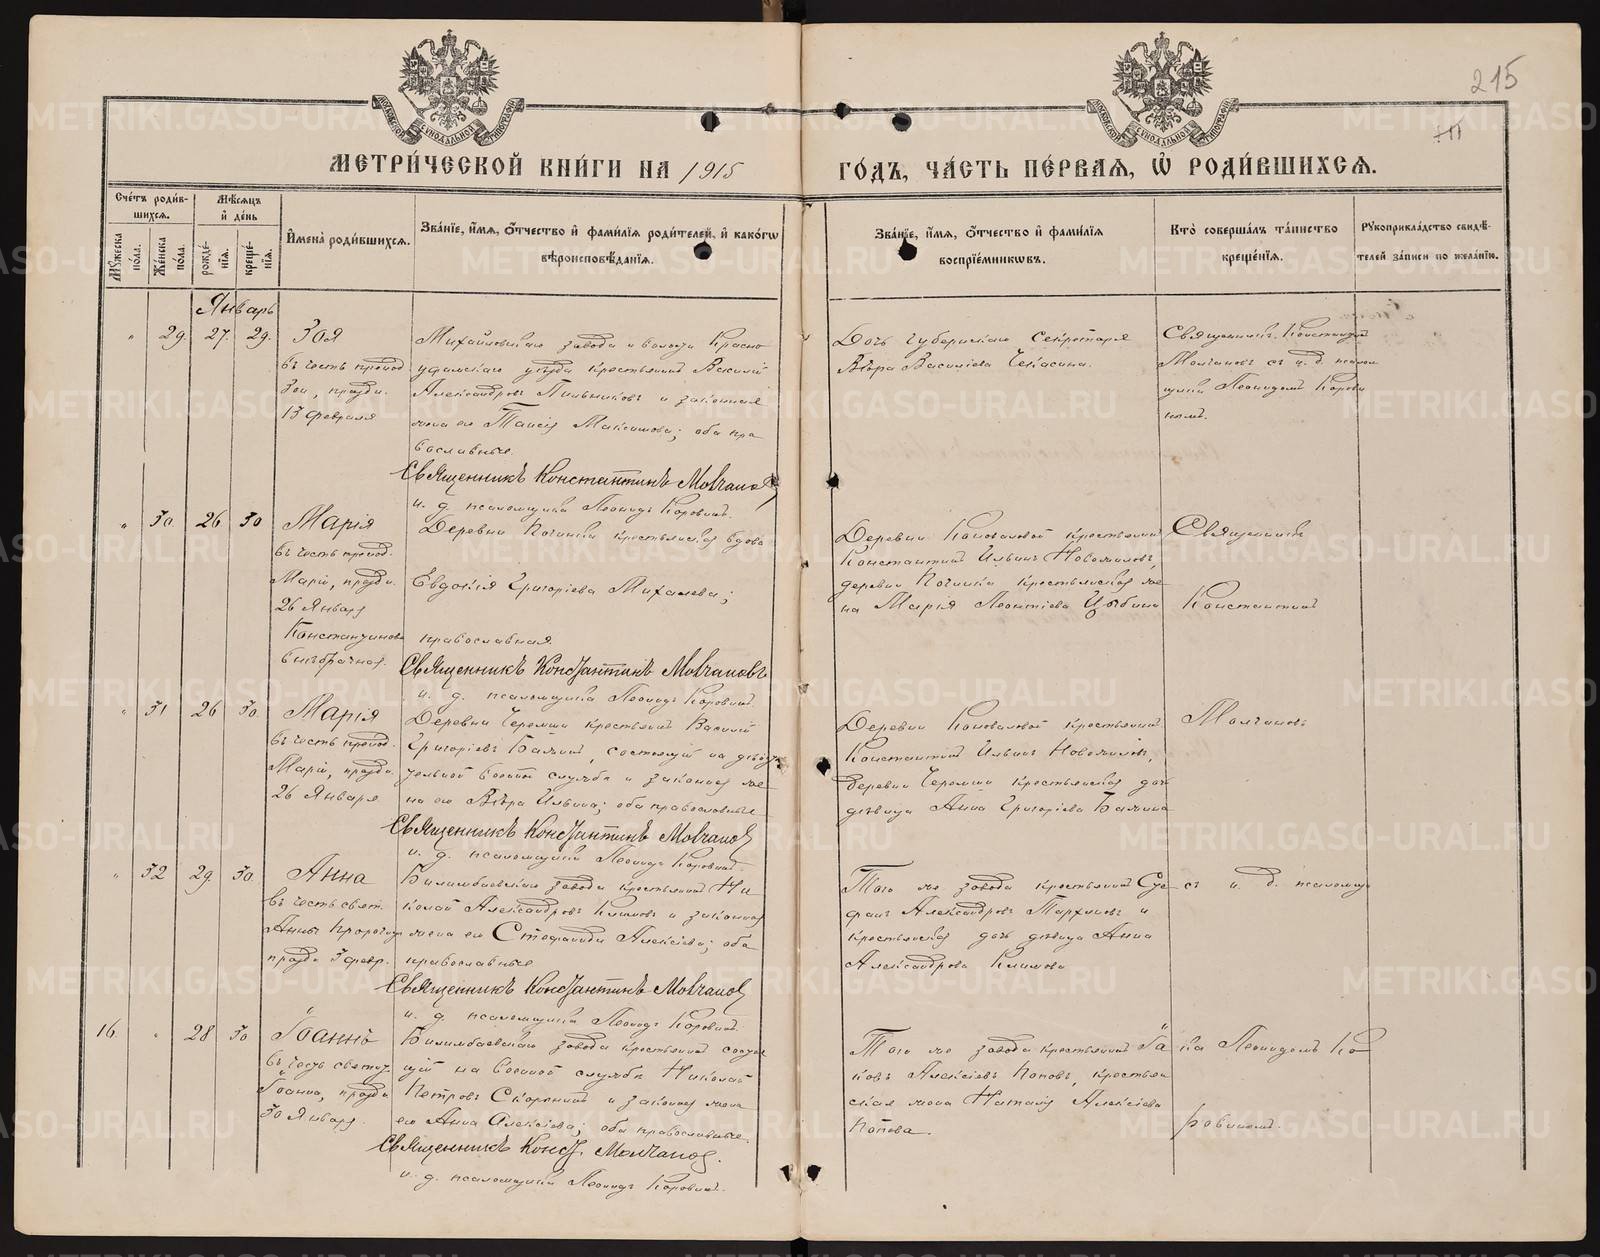 215
МЕТРИ́ЧЕСКОЙ КНИ́ГИ НА 1915 ГО́ДЪ, ЧА́СТЬ ПЕ́РВАЯ, Ѿ РОДИ́ВШИХСЯ.
Сче́тъ роди́в-
шихся.
Му́жеска по́ла.
Же́нска по́ла.
Мѣ́сяцъ
и де́нь
рожде́-
нія.
креще́-
нія.
И́мена роди́вшихся.
Зва́ніе, и́мя, о́тчество и фами́лія роди́телей, и како́гѡ
вѣроисповѣ́данія.
Зва́ніе, и́мя, о́тчество и фами́лія
воспріе́мниковъ.
Кто̀ соверша́лъ та́инство
креще́нія.
Рукоприкла́дство свидѣ́-
телей за́писи по жела́нію.
Январь
" 29. 27. 29. Зоя
въ честь препод.
Зои, праздн.
13 февраля
Михайловскаго завода и волости Красно
уфимскаго уѣзда крестьянинъ Василій
Александровъ Пильниковъ и законная
жена его Таисія Максимова; оба пра
вославные.
Священникъ Константинъ Молчановъ
и. д. псаломщика Леонидъ Коровинъ.
Дочь губернскаго секретаря
Вѣра Васильева Чекасина.
Священникъ Константинъ
Молчановъ съ и. д. псалом
щика Леонидомъ Корови
нымъ.
" 30. 26 30 Марія
въ честь препод.
Маріи, праздн.
26 Января
Константинова
внѣбрачная.
Деревни Починка крестьянская вдова
Евдокія Григоріева Михалева;
православная.
Священникъ Константинъ Молчановъ
и. д. псаломщика Леонидъ Коровинъ.
Деревни Коноваловой крестьянинъ
Константинъ Ильинъ Новожиловъ,
деревни Починка крестьянская же
на Марія Леонтіева Цыбина
Священникъ
Константинъ
" 31 26 30. Марія
въ честь препод.
Маріи, праздн.
26 Января
Деревни Черемши крестьянинъ Василій
Григорьевъ Бажинъ, состоящій на дѣйстви
тельной военной службѣ и законная же
на его Вѣра Ильина; оба православные
Священникъ Константинъ Молчановъ
и. д. псаломщика Леонидъ Коровинъ.
Деревни Коноваловой крестьянинъ
Константинъ Ильинъ Новожиловъ,
деревни Черемши крестьянская дочь
дѣвица Анна Григоріева Бажина
Молчановъ
" 32 29. 30. Анна
въ честь свят.
Анны Пророчицы
праздн. 3 февр.
Билимбаевскаго завода крестьянинъ Ни
колай Александровъ Климовъ и законная
жена его Стефанида Алексіева; оба
православные
Священникъ Константинъ Молчановъ
и. д. псаломщика Леонидъ Коровинъ.
Того же завода крестьянинъ Сте
фанъ Александровъ Парфеновъ и
крестьянская дочь дѣвица Анна
Александрова Климова
съ и. д. псаломщи
16. " 28 30 Іоаннъ
въ честь святит.
Іоанна, праздн.
30 Января.
Билимбаевскаго завода крестьянинъ состоя
щій на военной службѣ Николай
Петровъ Скорынинъ и законная жена
его Анна Алексіева; оба православные.
Священникъ Конст. Молчановъ.
и. д. псаломщика Леонидъ Коровинъ.
Того же завода крестьянинъ Іа
ковъ Алексіевъ Поповъ, крестьян
ская жена Наталія Алексіева
Попова.
ка Леонидомъ Ко
ровинымъ.
METRIKI.GASO-URAL.RU